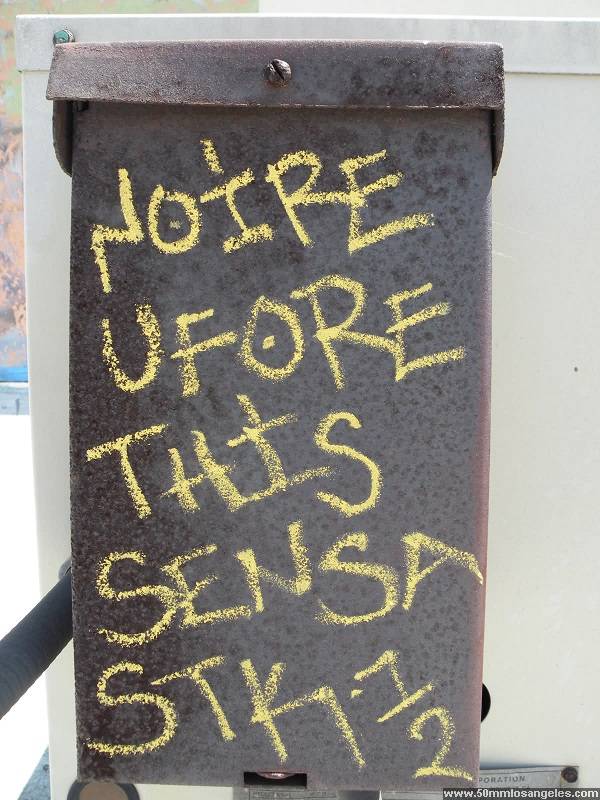 NOIRE
UFORE
THIS
SENSA
STK-12
PORATION
www.50mmlosangeles.com